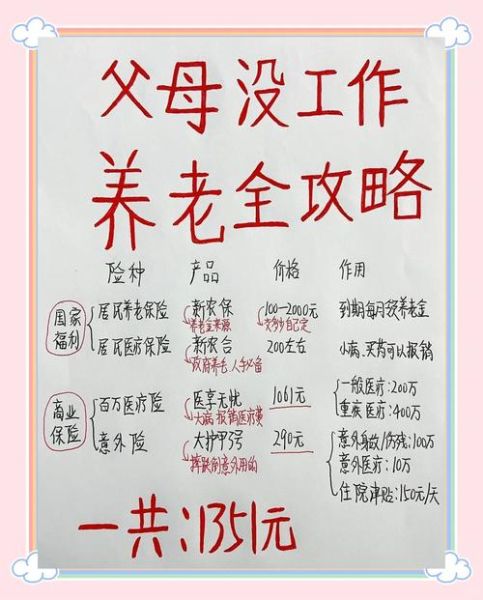 父母没工作
养老全攻略
险种 产品 价格 作用
国家福利 居民养老保险 新农保 100-2000元 到期每月领养老金
养老金来源 交多少自己定
居民医疗保险 新农合 200左右 小病、买药可以报销
政府养老 人手必备
商业保险 百万医疗险 医享无忧 1061元 一般医疗:200万
大病报销医疗费 重疾医疗:400万
意外险 大护甲3号 290元 意外身故/伤残:100万
摔跌刮意外用的 意外医疗:10万
住院津贴:150元/天
一共:1351元